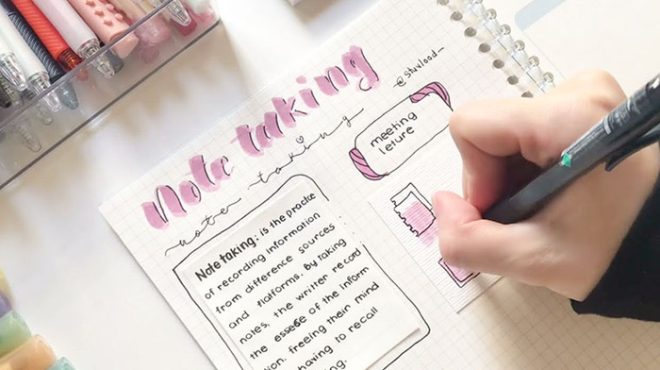 Note taking
note taking
@stuvlood_
meeting
leture
Note taking: is the practice
of recording information
from difference sources
and flatforms. By taking
notes, the writer record
the essese of the inform
tion, freeing their mind
having to recall